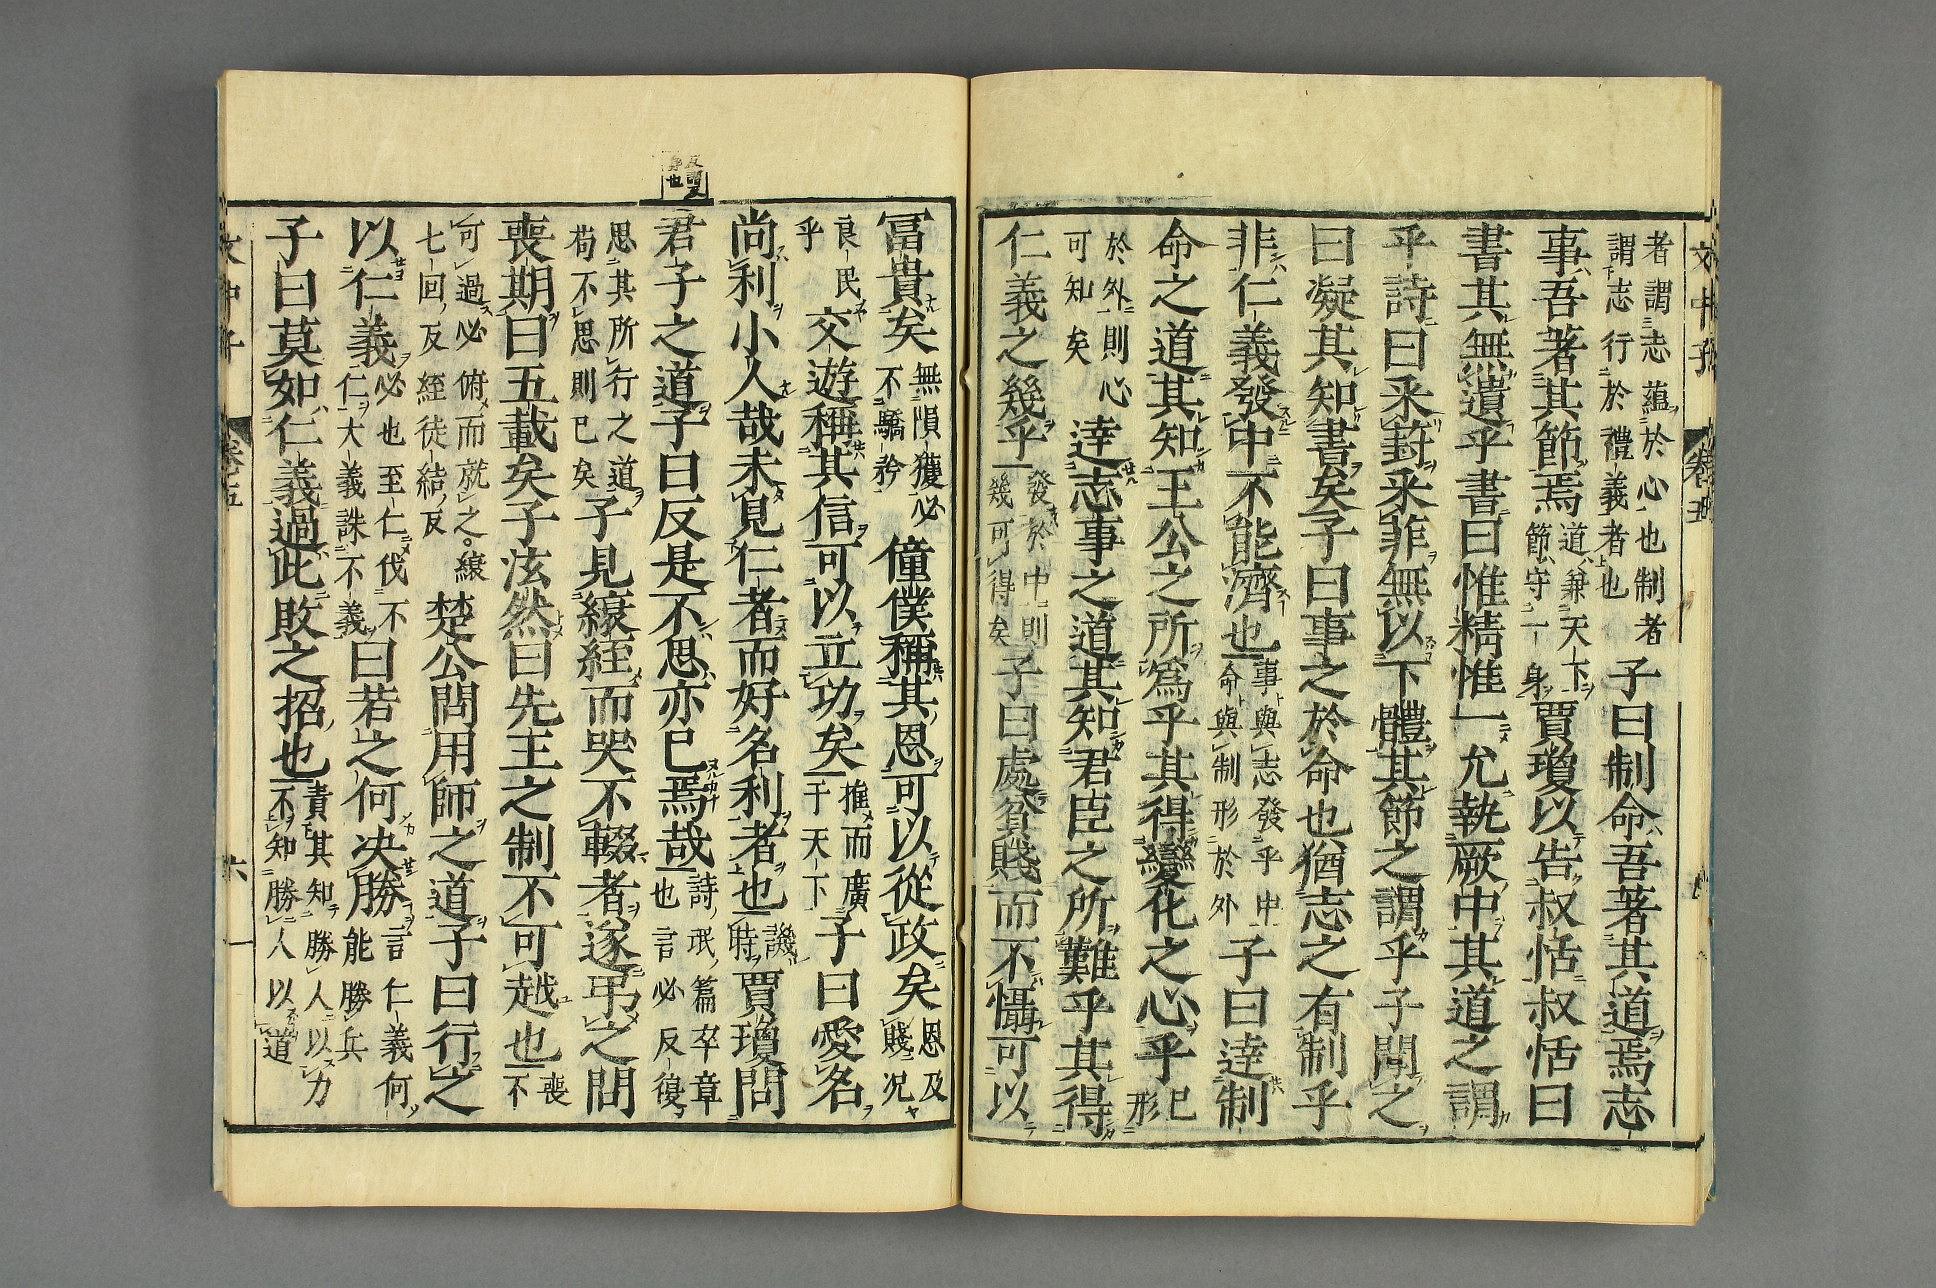 者謂志蘊於心也制者
謂志行於禮義者也
子曰制命吾著其道焉志
事吾著其節焉
道兼天下
節守一身
賈瓊以告叔恬叔恬曰
書其無遺乎書曰惟精惟一允執厥中其道之謂
乎詩曰采葑采菲無以下體其節之謂乎子聞之
曰凝其知書矣子曰事之於命也猶志之有制乎
非仁義發中不能濟也
事與志發乎中
命與制形於外
子曰達制
命之道其知王公之所爲乎其得變化之心乎
已形
於外則心
可知矣
達志事之道其知君臣之所難乎其得
仁義之幾乎
發於中則
幾可得矣
子曰處貧賤而不懾可以
富貴矣
無隕穫必
不驕矜
僮僕稱其恩可以從政矣
恩及
賤况
良民
乎
交遊稱其信可以立功矣
推而廣
于天下
子曰愛名
尚利小人哉未見仁者而好名利者也
譏
時
賈瓊問
君子之道子曰反是不思亦已焉哉
詩氓篇卒章
也言必反復
思其所行之道
苟不思則已矣
子見縗絰而哭不輟者遂弔之問
喪期曰五載矣子泫然曰先王之制不可越也
喪
不
可過必俯而就之縗
七回反絰徒結反
楚公問用師之道子曰行之
以仁義
必也至仁伐不
仁大義誅不義
曰若之何决勝
言仁義何
能勝兵
子曰莫如仁義過此敗之招也
責其知勝人以力
不知勝人以道
文中子
卷五
六